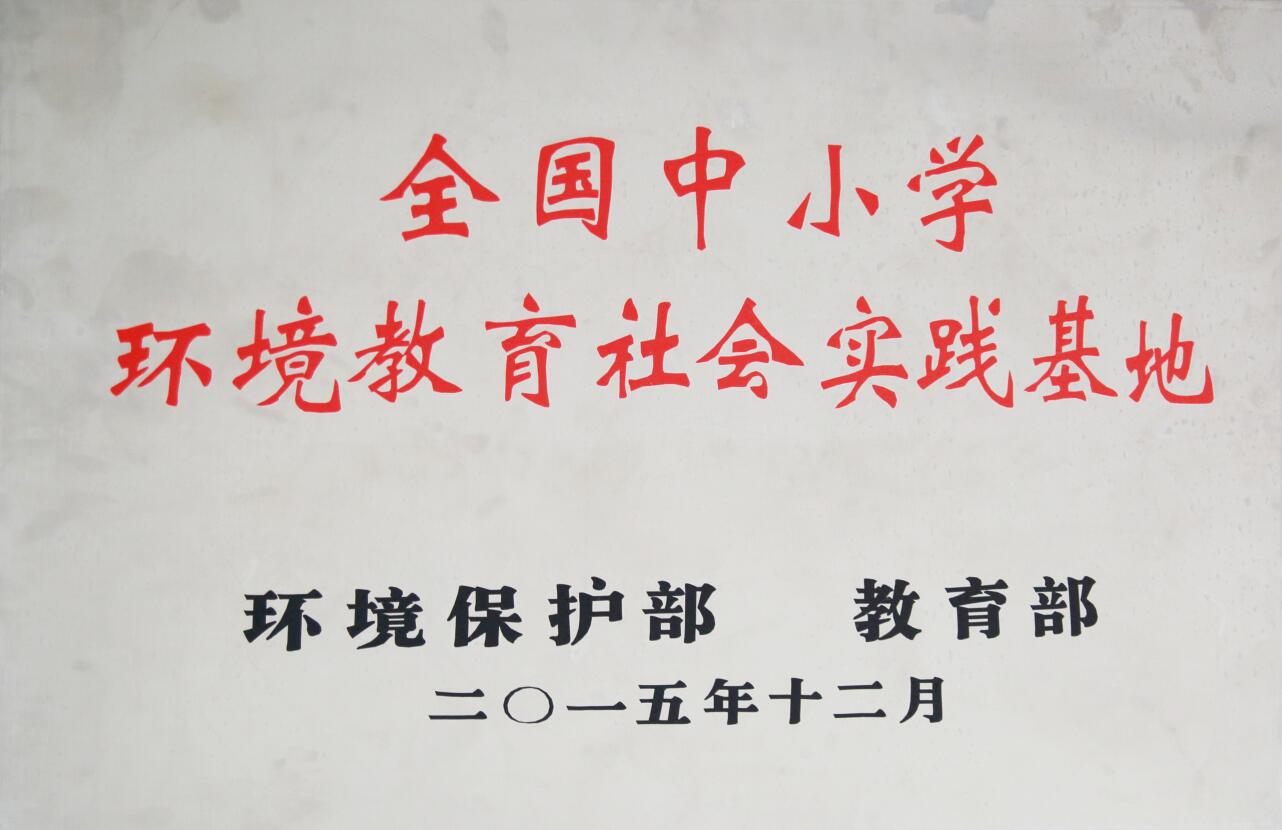 全国中小学
环境教育社会实践基地
环境保护部 教育部
二〇一五年十二月